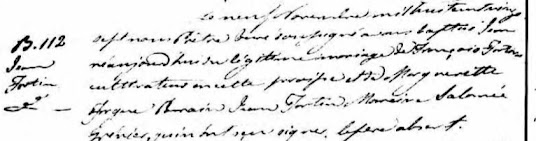 Le neuf Novembre mil huit cent vingt
B. 112
Jean
Fortin
sept nous Prêtre Curé soussigné avons baptisé Jean
né aujourd'hui du légitime mariage de François Fortin
cultivateur en cette paroisse et de Marguerite
Parrain Jean Fortin Marraine Salomée
Grénier, qui n'ont su signer, le père absent.